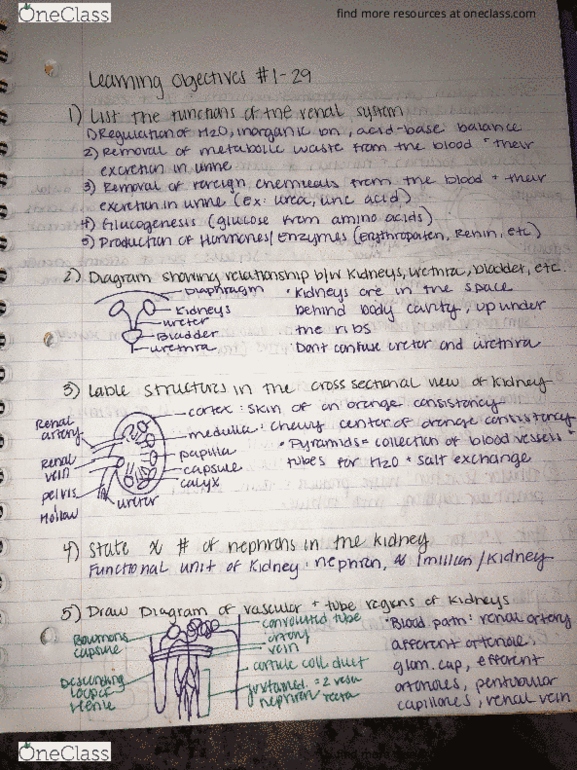 OneClass
find more resources at oneclass.com
Learning Objectives #1-29
1) List the functions of the renal system
1) Regulation of H2O, inorganic ion, acid-base balance
2) Removal of metabolic waste from the blood + their
excretion in urine
3) Removal of foreign chemicals from the blood + their
excretion in urine (ex: urea, uric acid)
4) Glucogenesis (glucose from amino acids)
5) Production of Hormones/Enzymes (Erythropoten, Renin, etc)
2) Diagram showing relationship b/w kidneys, urethra, bladder, etc.
Diaphragm
Kidneys
ureter
Bladder
urethra
• Kidneys are in the space
behind body cavity, up under
the ribs
• Dont confuse ureter and urethra
3) Lable structures in the cross sectional view of kidney
Renal
artery
Renal
vein
pelvis
Hollow
ureter
cortex: skin of an orange consistancy
medulla: chewy center of orange consistancy
papilla
capsule
calyx
• Pyramids = collection of blood vessels +
tubes for H2O + salt exchange
4) State ≈ # of nephrons in the kidney
Functional unit of kidney: nephron, ≈ 1 million/kidney
5) Draw Diagram of vascular + tube regions of kidneys
Bowmans
capsule
Descending
loop of
Henle
convoluted tube
artery
vein
corticle coll. duct
juxtamed. = 2 vasa
nephron recta
• Blood path: renal artery
afferent arteriole,
glom. cap, efferent
arterioles, peritubular
capillaries, renal vein
OneClass
find more